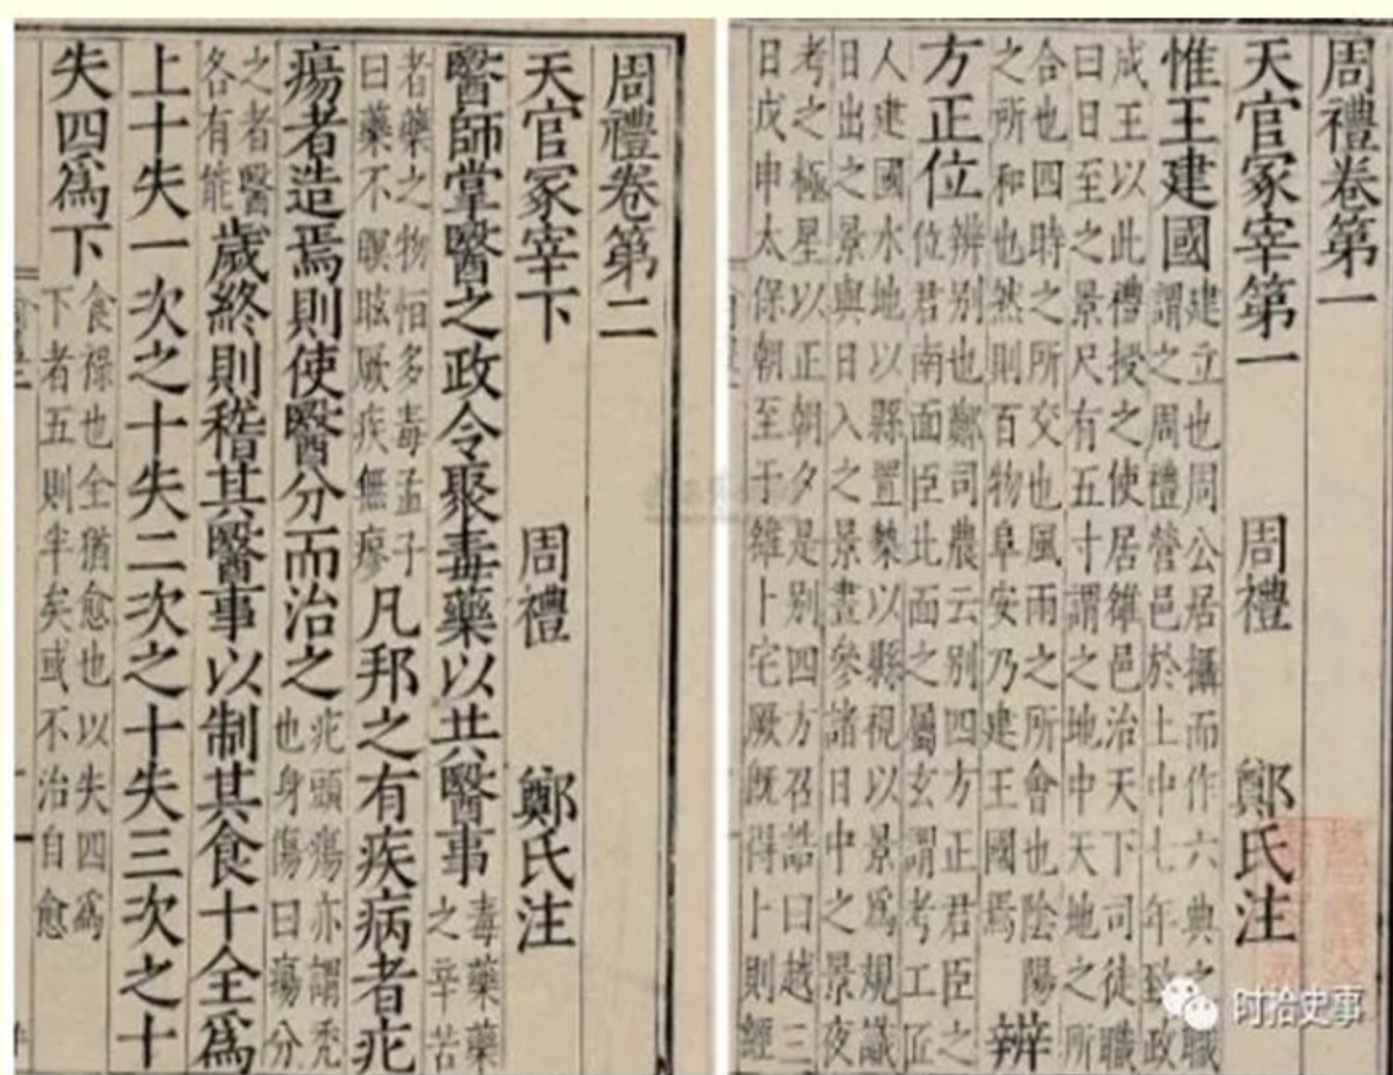 周禮卷第一
天官冢宰第一 周禮 鄭氏注
惟王建國
建立也周公居攝而作六典之職
謂之周禮營邑於土中七年致政
成王以此禮授之使居雒邑治天下司徒職
曰日至之景尺有五寸謂之地中天地之所
合也四時之所交也風雨之所會也陰陽
之所和也然則百物阜安乃建王國焉
辨
方正位
辨别也鄭司農云别四方正君臣之
位君南面臣北面之屬玄謂考工匠
人建國水地以縣置槷以縣視以景爲規識
日出之景與日入之景晝參諸日中之景夜
考之極星以正朝夕是别四方召誥曰越三
日戊申太保朝至于雒卜宅厥旣得卜則經
周禮卷第二
天官冢宰下 周禮 鄭氏注
醫師掌醫之政令聚毒藥以共醫事
毒藥藥
之辛苦
者藥之物恒多毒孟子
曰藥不瞑眩厥疾無瘳
凡邦之有疾病者疕
瘍者造焉則使醫分而治之
疕頭瘍亦謂禿
也身傷曰瘍分
之者醫
各有能
歲終則稽其醫事以制其食十全爲
上十失一次之十失二次之十失三次之十
失四爲下
食祿也全猶愈也以失四爲
下者五則半矣或不治自愈
时拾史事